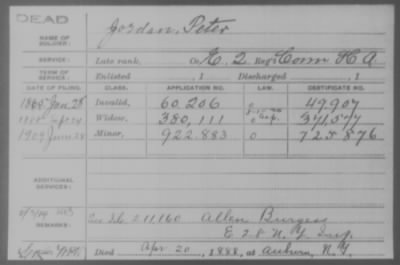 DEAD
NAME OF SOLDIER: Jordan, Peter
SERVICE: Late rank, Co. K, 2 Reg't Conn H A
TERM OF SERVICE: Enlisted , 1 Discharged , 1
DATE OF FILING. CLASS. APPLICATION NO. LAW. CERTIFICATE NO.
Jan. 28 Invalid, 60.206 49907
Widow, 380,111
1909 June 28 Minor, 922.883 0 725.876
ADDITIONAL SERVICES:
REMARKS: 211160 Allen Burgess
E 28 N.Y. Inf.
Died Apr 20, 1888, at Auburn, N.Y.